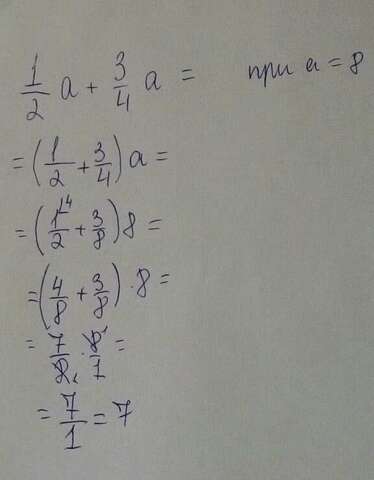 1/2 a + 3/4 a = при a = 8
= (1/2 + 3/4) a =
= (1^4/2 + 3/8) 8 =
= (4/8 + 3/8) · 8 =
= 7/8₁ · 8¹/1 =
= 7/1 = 7